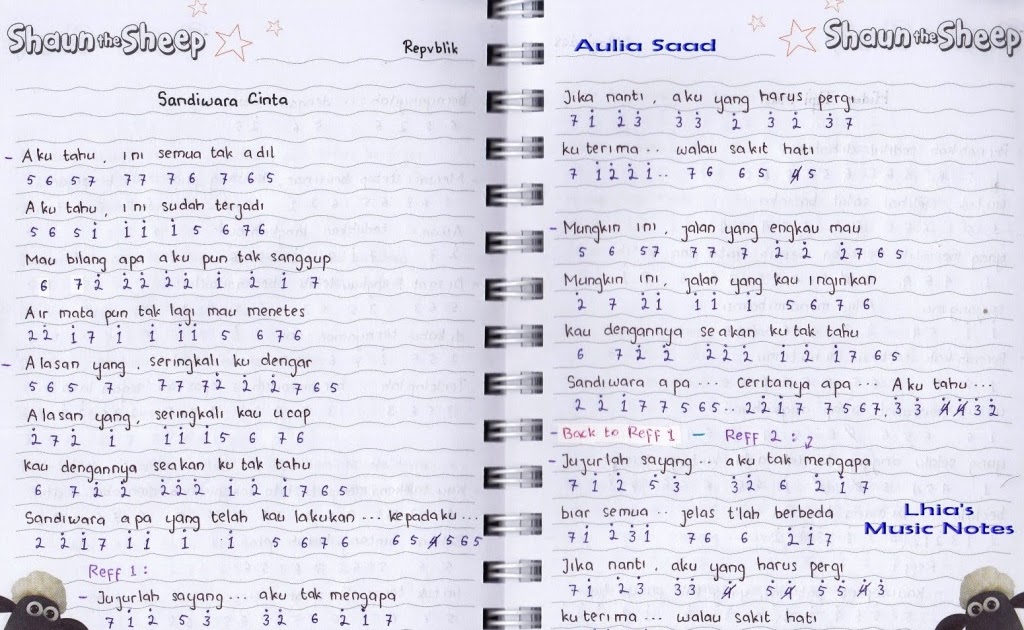 Shaun the Sheep
Repvblik
Sandiwara Cinta
- Aku tahu, ini semua tak adil
5 6 5 7 7 7 7 6 7 6 5
Aku tahu, ini sudah terjadi
5 6 5 1 1 1 1 5 6 7 6
Mau bilang apa aku pun tak sanggup
6 7 2 2 2 2 2 1 2 1 7
Air mata pun tak lagi mau menetes
2 2 1 7 1 1 1 1 5 6 7 6
- Alasan yang, seringkali ku dengar
5 6 5 7 7 7 7 2 2 2 7 6 5
Alasan yang, seringkali kau ucap
2 7 2 1 1 1 1 5 6 7 6
Kau dengannya seakan ku tak tahu
6 7 2 2 2 2 2 1 2 1 7 6 5
Sandiwara apa yang telah kau lakukan ... kepadaku ...
2 2 1 7 1 1 1 1 5 6 7 6 6 5 4 5 6 5
Reff 1 :
- Jujurlah sayang ... aku tak mengapa
7 1 2 5 3 3 2 6 2 1 7
Aulia Saad
Shaun the Sheep
Jika nanti, aku yang harus pergi
7 1 2 3 3 3 2 3 2 3 7
ku terima ... walau sakit hati
7 1 2 2 1 .. 7 6 6 5 4 5
- Mungkin ini, jalan yang engkau mau
5 6 5 7 7 7 7 2 2 2 7 6 5
Mungkin ini, jalan yang kau inginkan
2 7 2 1 1 1 1 5 6 7 6
kau dengannya seakan ku tak tahu
6 7 2 2 2 2 2 1 2 1 7 6 5
Sandiwara apa ... Ceritanya apa ... Aku tahu ...
2 2 1 7 7 5 6 5 .. 2 2 1 7 7 5 6 7. 3 3 4 4 3 2
- Back to Reff 1 - Reff 2 :
- Jujurlah sayang ... aku tak mengapa
7 1 2 5 3 3 2 6 2 1 7
biar semua .. jelas t'lah berbeda
7 1 2 3 1 7 6 6 2 1 7
Lhia's
Music Notes
Jika nanti, aku yang harus pergi
7 1 2 3 3 3 4 5 4 5 5 4 3
ku terima ... walau sakit hati